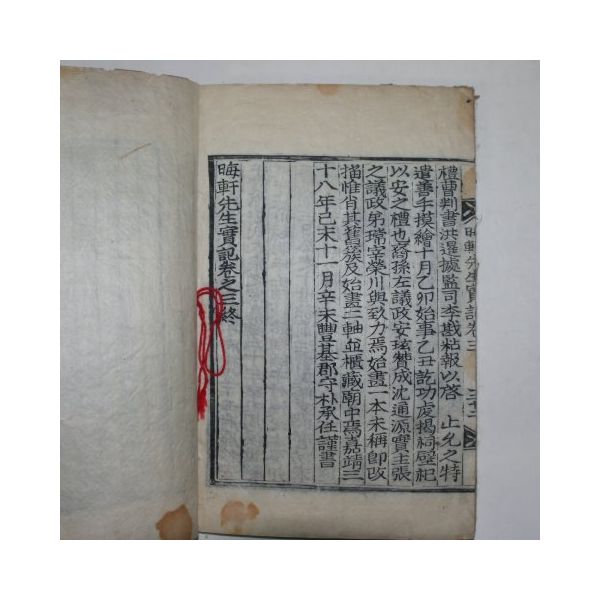 晦軒先生實記卷三
三十二
禮曹判書洪暹據監司李戡粘報以啓 上允之特
遣善手摸繪十月乙卯始事乙丑訖功虔揭祠壁祀
以安之禮也裔孫左議政安玹贊成沈通源實主張
之議政弟瑺宰榮川與致力焉始畫一本未稱卽改
描惟肖其舊族及始畫二軸並櫃藏廟中焉嘉靖三
十八年己未十一月辛未豊基郡守朴承任謹書
晦軒先生實記卷之三終